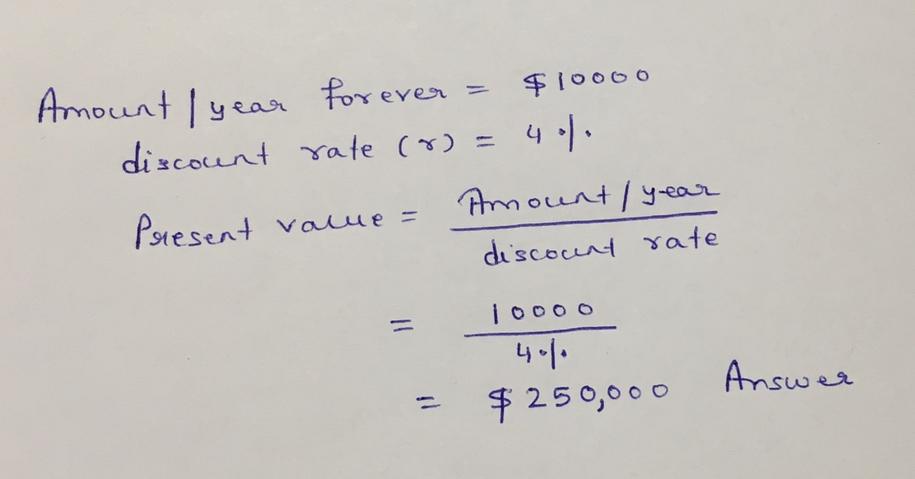 Amount / year forever = $10000
discount rate (r) = 4%
Present value = Amount / year
discount rate
= 10000
4%
= $250,000 Answer